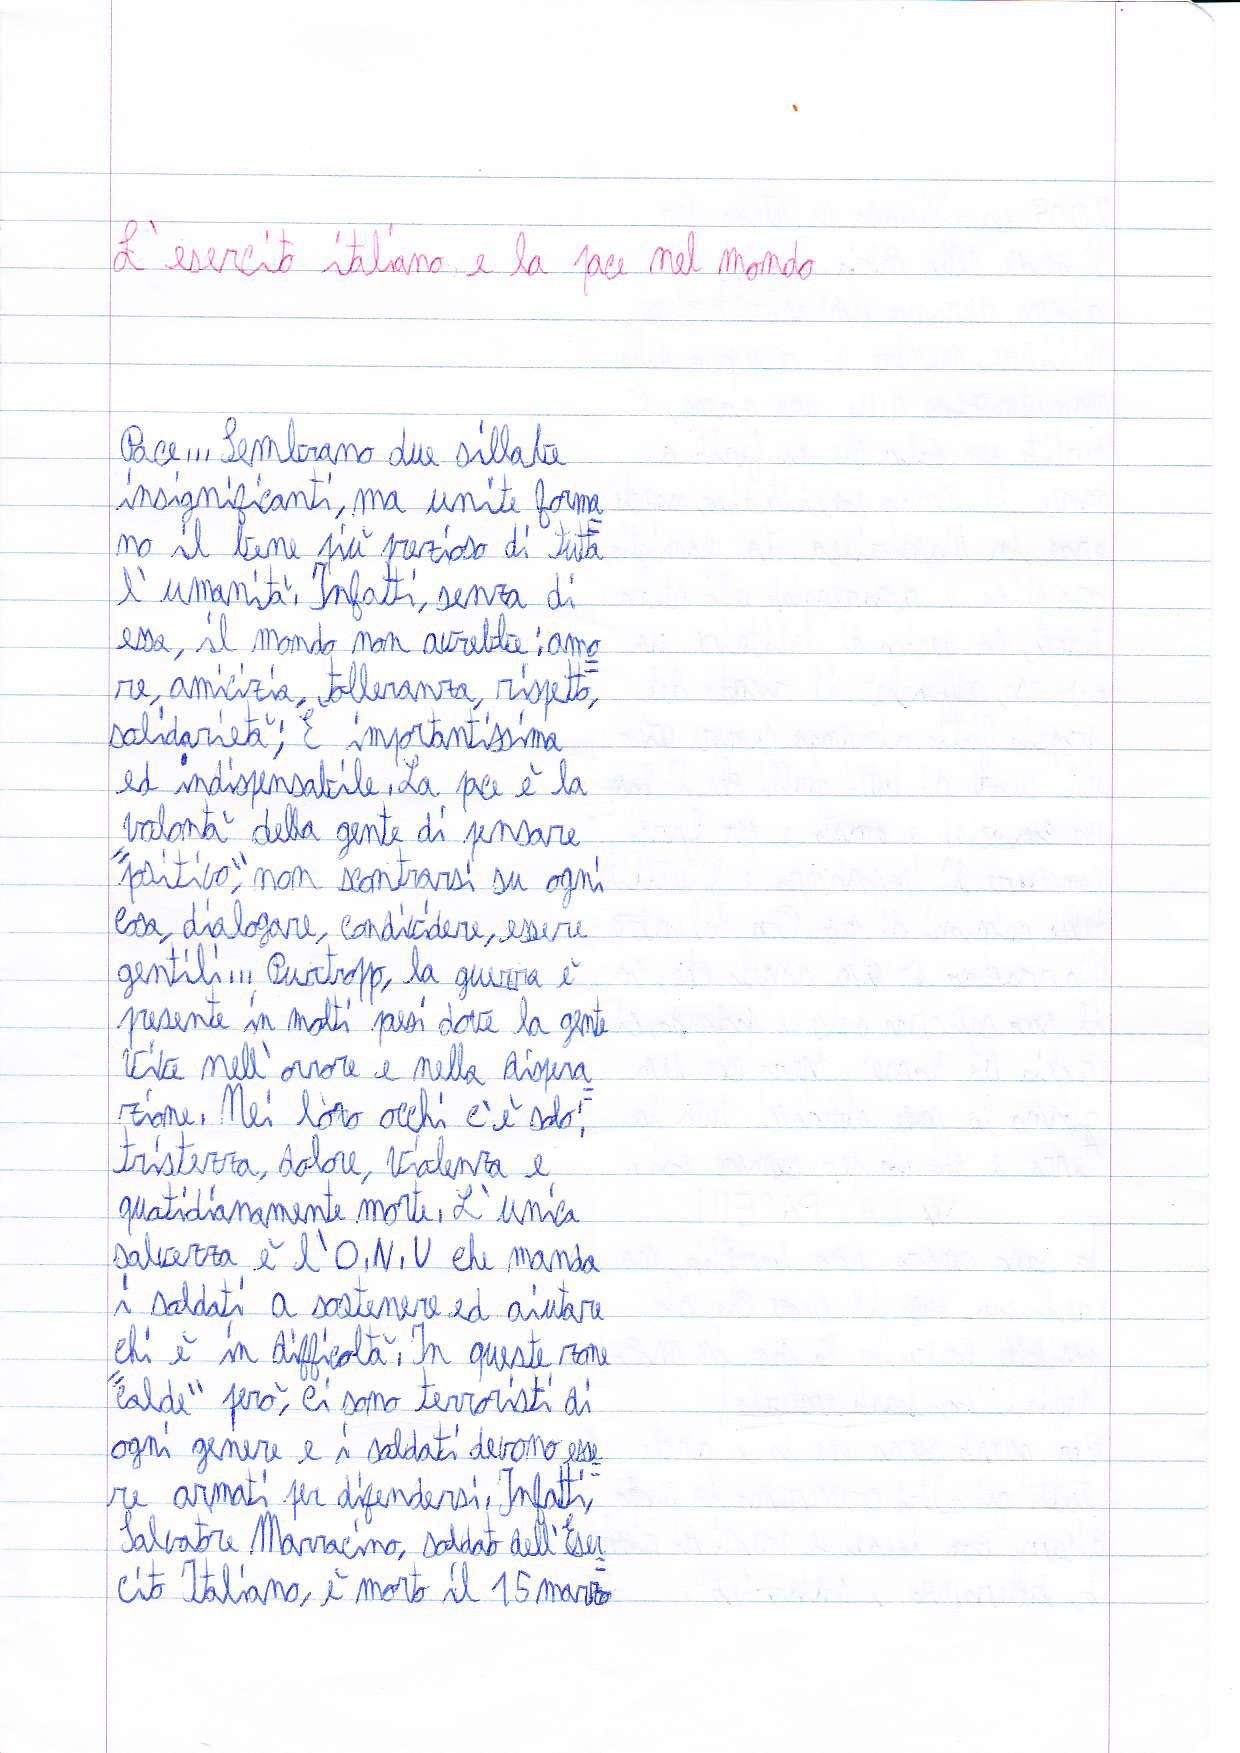 L'esercito italiano e la pace nel mondo
Pace... Sembrano due sillabe
insignificanti, ma unite forma=
no il bene più prezioso di tutta
l'umanità. Infatti, senza di
essa, il mondo non avrebbe: amo=
re, amicizia, tolleranza, rispetto,
solidarietà; È importantissima
ed indispensabile. La pace è la
volontà della gente di pensare
"positivo", non scontrarsi su ogni
cosa, dialogare, condividere, essere
gentili... Purtropp, la guerra è
presente in molti paesi dove la gente
vive nell'orrore e nella dispera=
zione. Nei loro occhi c'è solo:
tristezza, dolore, violenza e
quotidianamente morte. L'unica
salvezza è l'O.N.U che manda
i soldati a sostenere ed aiutare
chi è in difficoltà. In queste zone
"calde" però, ci sono terroristi di
ogni genere e i soldati devono esse=
re armati per difendersi. Infatti,
Salvatore Marracino, soldato dell'Eser=
cito Italiano, è morto il 15 marzo